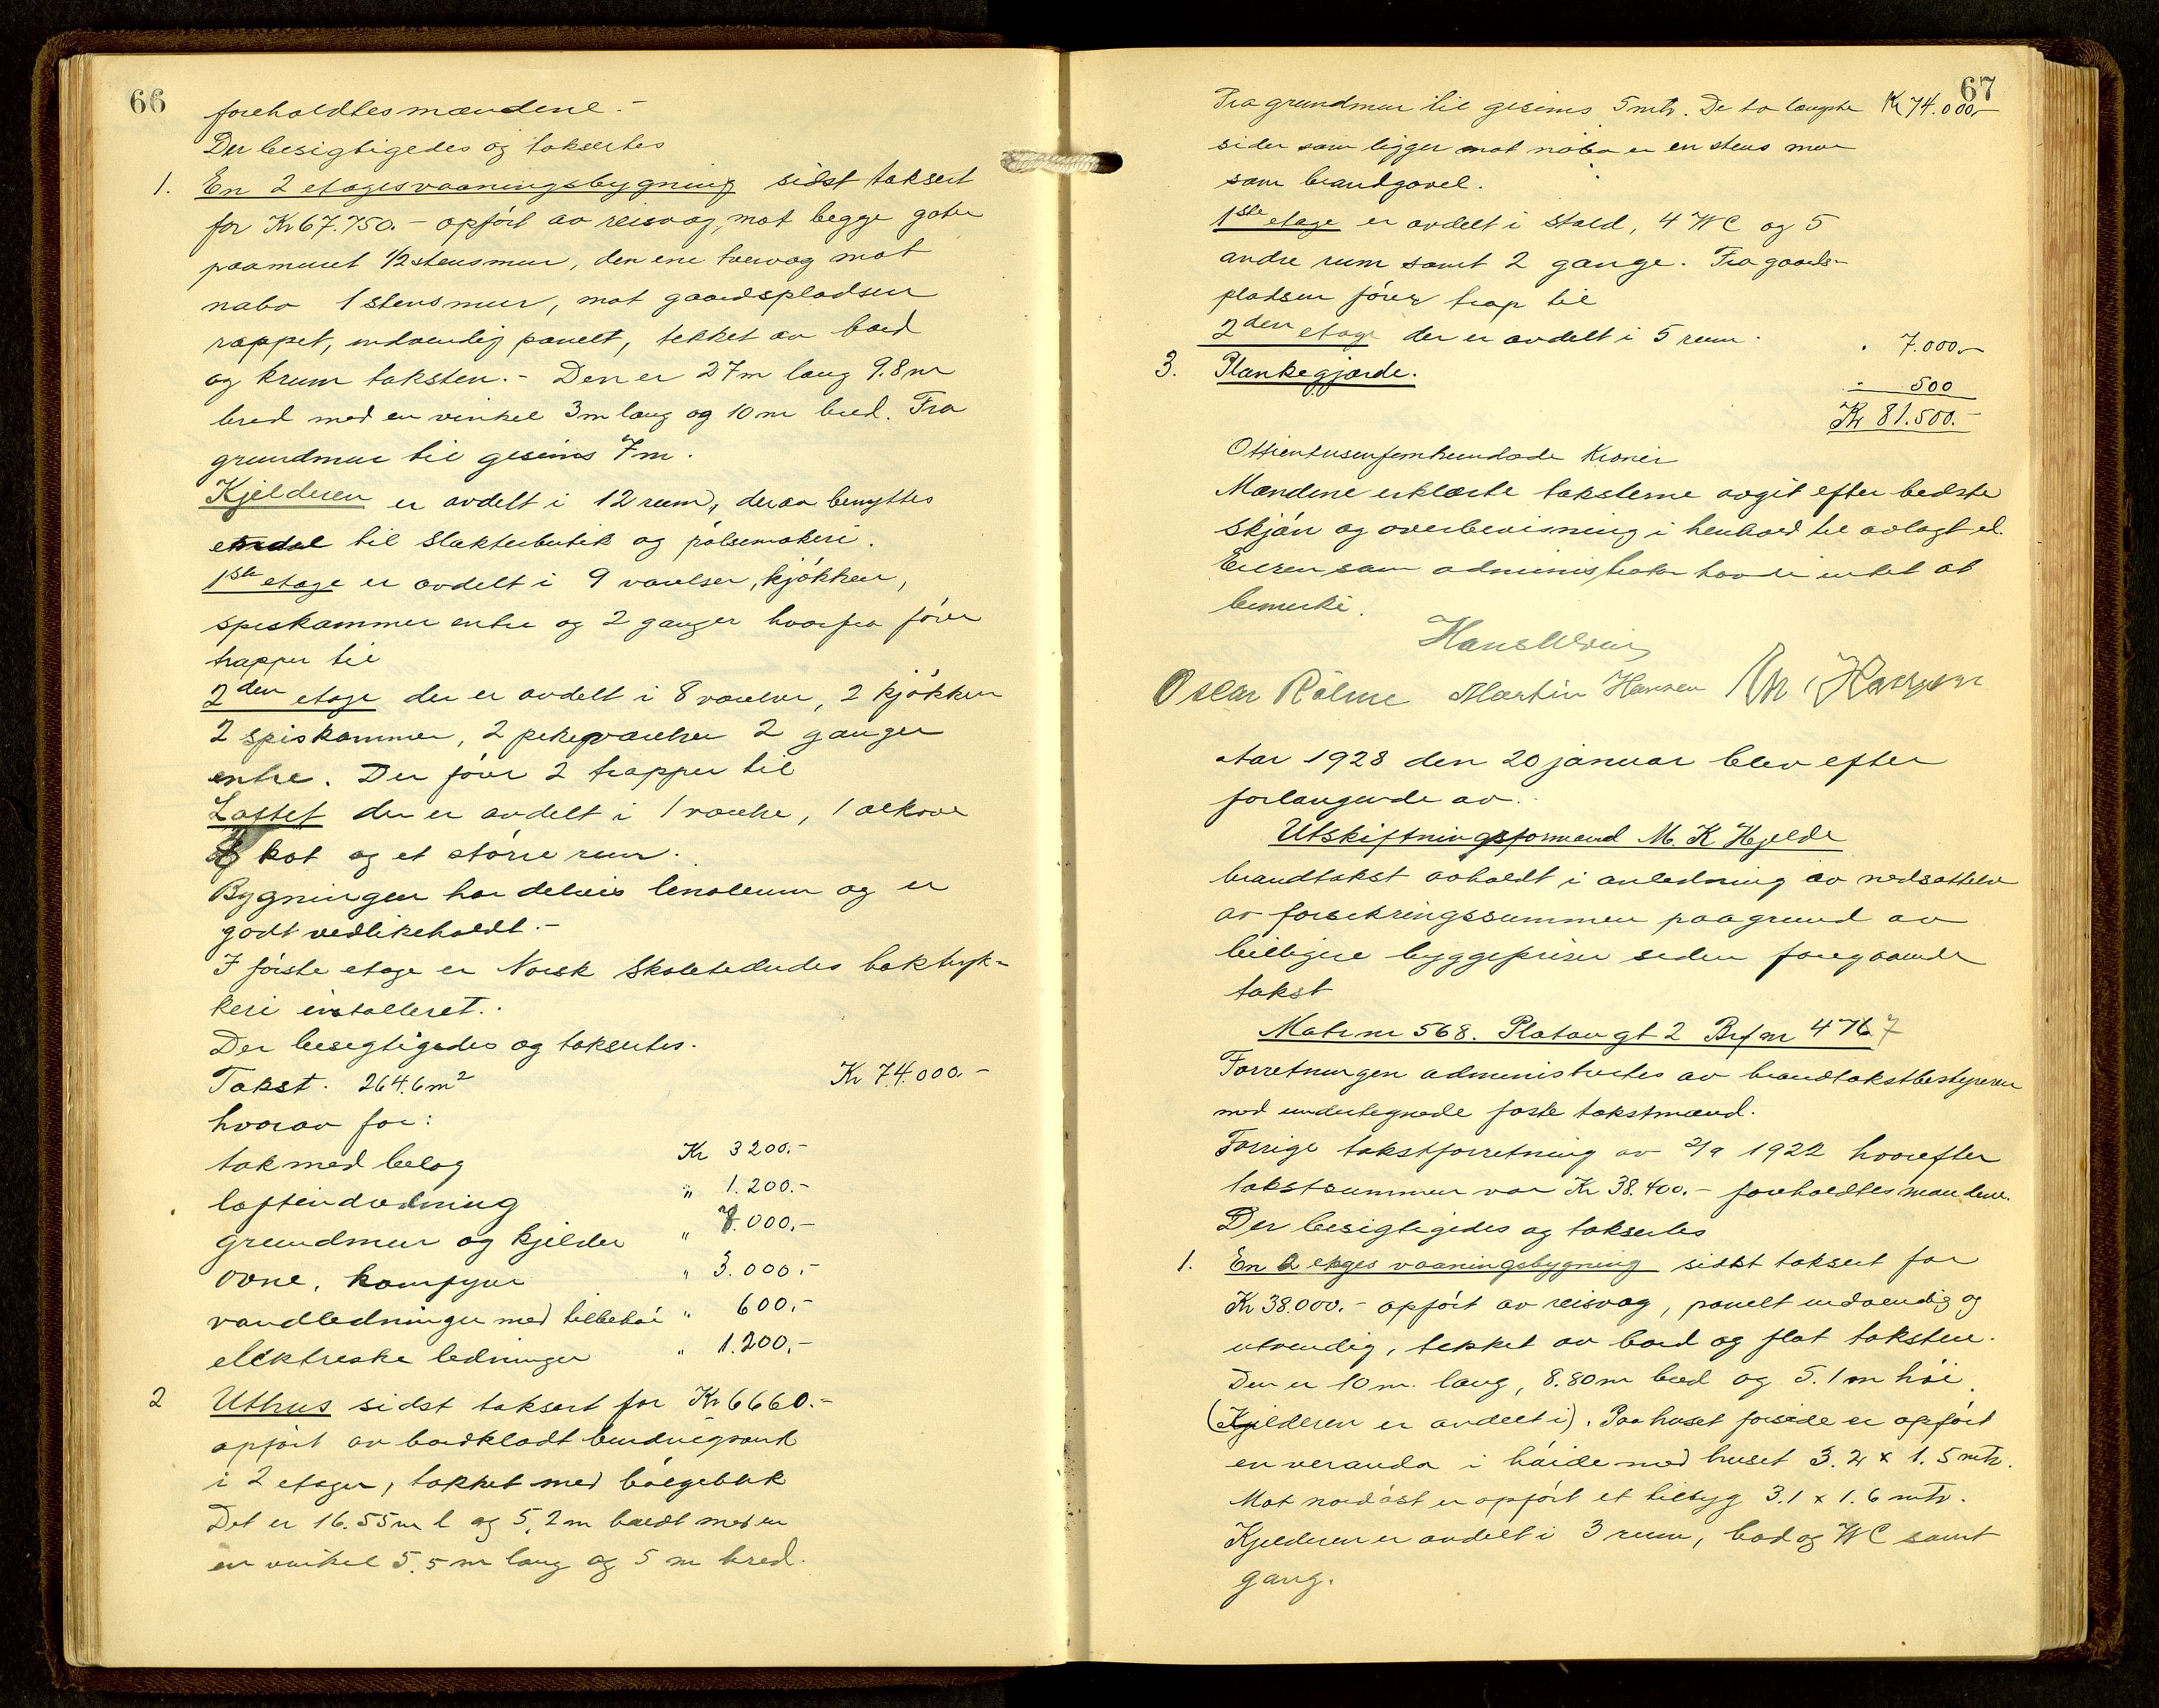 66
foreholdtes mændene.-
Der besigtigedes og taksertes
1. En 2 etages vaaningsbygning sidst taksert
for Kr 67.750.- opført av reisverk, mot begge gater
paamuret 1/2 stensmur, den ene tvervæg mot
nabo 1 stens mur, mot gaardspladsen
rappet, indvendig panelt, tekket av bord
og krum taksten.- Den er 27m lang 9.8m
bred med en vinkel 3m lang og 10m bred. Fra
grundmur til gesims 7m.
Kjelderen er avdelt i 12 rum, derav benyttes
endel til slakterbutik og pølsemakeri.
1ste etage er avdelt i 9 værelser, kjøkken,
spiskammer entre og 2 ganger hvorfra fører
trapper til
2den etage der er avdelt i 8 værelser, 2 kjøkken
2 spiskammer, 2 pikeværelser 2 ganger
entre. Der fører 2 trapper til
Loftet der er avdelt i 1 værelse, 1 alkove
kot og et større rum.
Bygningen har delvis linoleum og er
godt vedlikeholdt.-
I første etage er Norsk Skoletidendes boktryk-
keri installeret.
Der besigtigedes og taksertes.
Takst. 264.6m² Kr 74.000.-
hvorav for:
tak med belæg Kr 3200.-
loftindredning " 1.200.-
grundmur og kjelder " 8.000.-
ovne, komfyrer " 3.000.-
vandledninger med tilbehør " 600.-
elektriske ledninger " 1.200.-
2 Uthus sidst taksert for Kr 6660.-
opført av bordklædt bindingsverk
i 2 etager, tækket med bølgeblik
Det er 16.55m l og 5.2m bredt med en
en vinkel 5.5m lang og 5 m bred.
67
Fra grundmur til gesims 5 mtr. De to længste Kr 74.000,-
sider som ligger mot nabo er en stens mur
som brandgavel.
1ste etage er avdelt i stald, 4 WC og 5
andre rum samt 2 gange. Fra gaards-
pladsen fører trap til
2den etage der er avdelt i 5 rum. " 7.000.-
3. Plankegjærde. " 500
Kr 81.500.-
Ottientusenfemhundrede Kroner
Mændene erklærte taksterne avgit efter bedste
skjøn og overbevisning i henhold til avlagt ed.
Eieren som administrator havde intet at
bemerke.
Oscar Rølme Martin Hansen
Aar 1928 den 20 januar blev efter
forlangende av.
Utskiftningsformand M. K Hjelde
brandtakst avholdt i anledning av nedsættelse
av forsikringssummen paagrund av
billigere byggepriser siden foregaaende
takst
Matr nr 568. Platou gt 2 Brf nr 4767
Forretningen administrertes av brandtakstbestyreren
med undertegnede faste takstmænd.
Forrige takstforretning av 2/9 1922 hvorefter
takstsummen var Kr 38.400.- foreholdtes mændene.
Der besigtigedes og taksertes
1. En 2 etages vaaningsbygning sidst taksert for
Kr 38.000.- opført av reisverk, panelt indvendig og
utvendig, tekket av bord og flat taksten.
Den er 10m. lang, 8.80m bred og 5.1m høi
(Kjelderen er avdelt i). Paa huset forside er opført
en veranda i høide med huset 3.2 x 1.5 mtr.
Mot nordøst er opført et tilbyg 3.1 x 1.6 mtr.
Kjelderen er avdelt i 3 rum, bad og WC samt
gang.